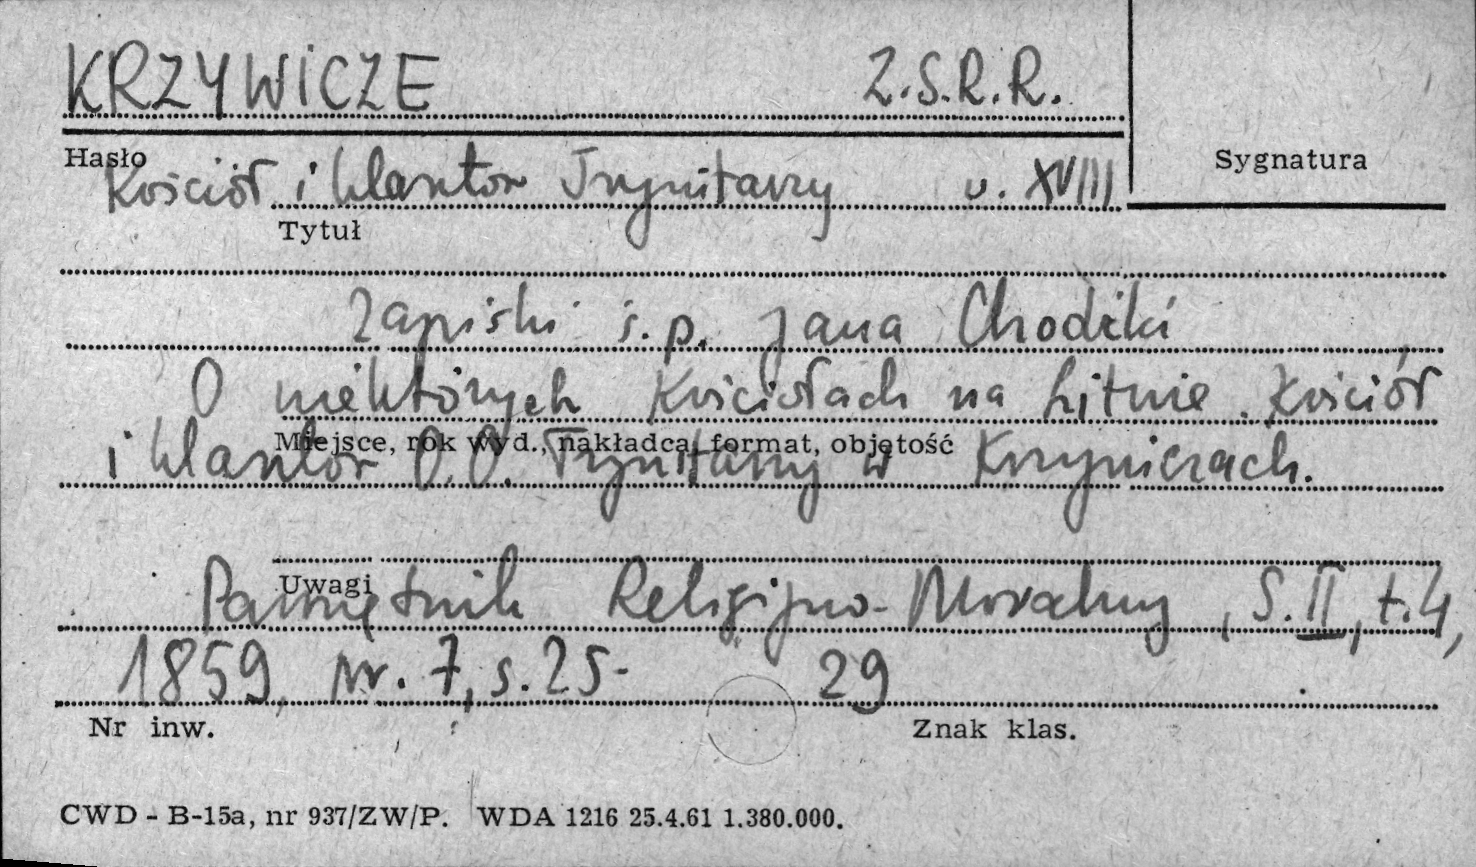 KRZYWICZE Z.S.R.R.
Hasło
Sygnatura
Kościół i klasztor Trynitarzy w. XVIII
Tytuł
Zapiski ś.p. Jana Chodźki
O niektórych Kościołach na Litwie. Kościół
Miejsce, rok wyd., nakładca, format, objętość
i klasztor O.O. Trynitarzy w Krzywiczach.
Uwagi
Pamiętnik Religijno-Moralny, S. II, t. 4,
1859, nr. 7, s. 25-29
Nr inw.
Znak klas.
CWD - B-15a, nr 937/ZW/P. WDA 1216 25.4.61 1.380.000.